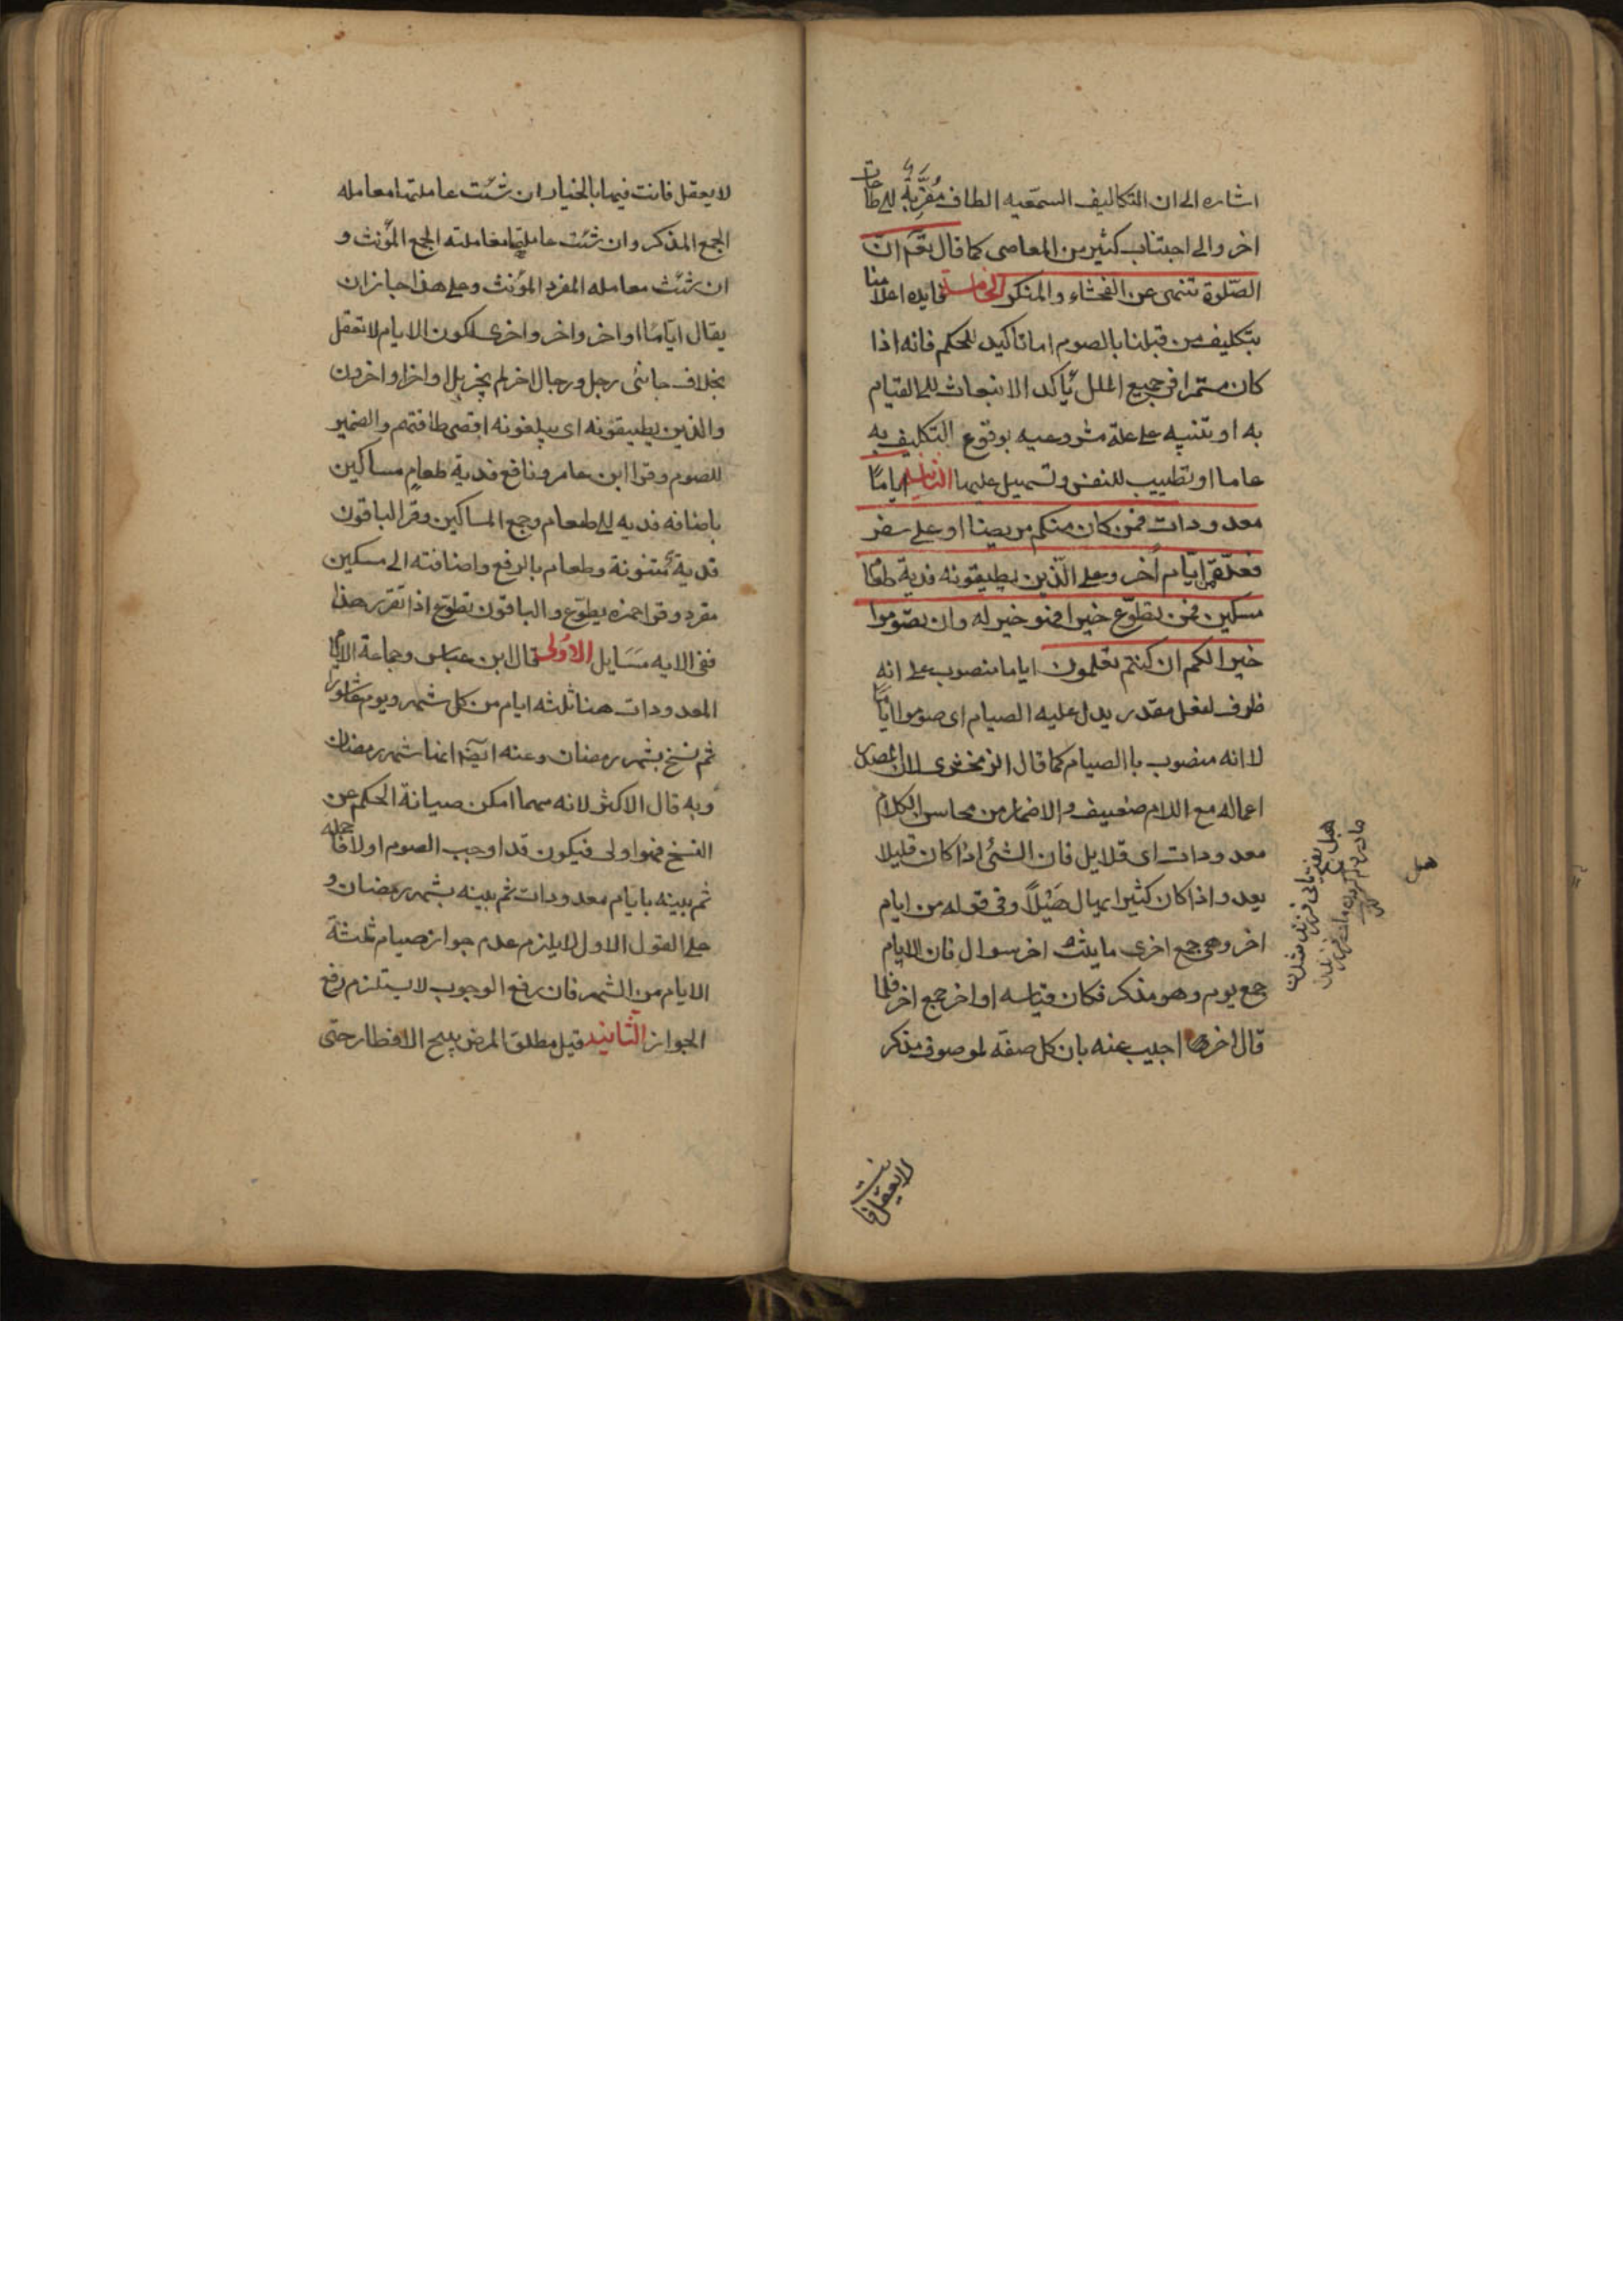 اشاره الى ان التكاليف السمعيه الطاف مُقرِّبةٌ الى طاعات
اخر والى اجتناب كثير من المعاصى كما قال تعم ان
الصّلوة تنهى عن الفحشاء والمنكر الخامسة فايده اعلامنا
بتكليف من قبلنا بالصوم اما تاكيد للحكم فانه اذا
كان مستمرا فى جميع الملل يأكد الانبعاث الى القيام
به او تنبيه على علة مشروعيه بوقوع التكليف به
عاما او تطييب للنفس وتسهيل عليها الثانيه اياما
معدودات فمن كان منكم مريضا او على سفر
فعدّة من ايّام اُخر وعلى الّذين يطيقونه فدية طعام
مسكين فمن تطوّع خيرا فهو خير له وان تصوموا
خير لكم ان كنتم تعلمون اياما منصوب على انه
ظرف لفعل مقدر يدل عليه الصيام اى صوموا اياما
لا انه منصوب باالصيام كما قال الزمخشرى لان المصدر
اعماله مع اللام ضعيف والاضمار من محاسن الكلام
معدودات اى قلايل فان الشئ اذا كان قليلا
يعد واذا كان كثيرا يهال هَيْلاً وفى قوله من ايام
اخر وهى جمع اخرى مايثه اخر سوال فان الايام
جمع يوم وهو مذكر فكان قياسه اواخر جمع اخر فلما
قال اخر اجيب عنه بان كل صفه لموصوف مذكر
هيل
لا يعقل فانت
لا يعقل فانت فيها بالخيار ان شئت عاملتها معامله
الجمع المذكر وان شئت عاملتها معاملته الجمع المؤنث و
ان شئت معامله المفرد المؤنث وعلى هذا جاز ان
يقال ايّامًا اواخر واخر واخرى لكون الايام لا تعقل
بخلاف جائنى رجل ورجال اخر لم يجز بل اواخر او اخرون
والذين يطيقونه اى يبلغونه اقصى طاقتهم والضمير
للصوم وقرا ابن عامر ونافع فدية طعام مساكين
باضافه فديه الى طعام وجمع المساكين وقرا الباقون
فدية منونة وطعام بالرفع واضافته الى مسكين
مفرد وقرا حمزه يطوّع والباقون تطوّع اذا تقرر هذا
ففى الايه مَسَايل الاولى قال ابن عباس وجماعة الايام
المعدودات هنا ثلثه ايام من كل شهر ويوم عاشورا
ثم نسخ بشهر رمضان وعنه ايضا انها شهر رمضان
وبه قال الاكثر لانه مهما امكن صيانة الحكم عن
النسخ فهو اولى فيكون قد اوجب الصوم اولا فاجمله
ثم بينه بايام معدودات ثم بينه بشهر رمضان و
على القول الاول لا يلزم عدم جواز صيام ثلثة
الايام من الشهر فان رفع الوجوب لا يستلزم رفع
الجواز الثانيه قيل مطلق المرض يبيح الافطار حتى